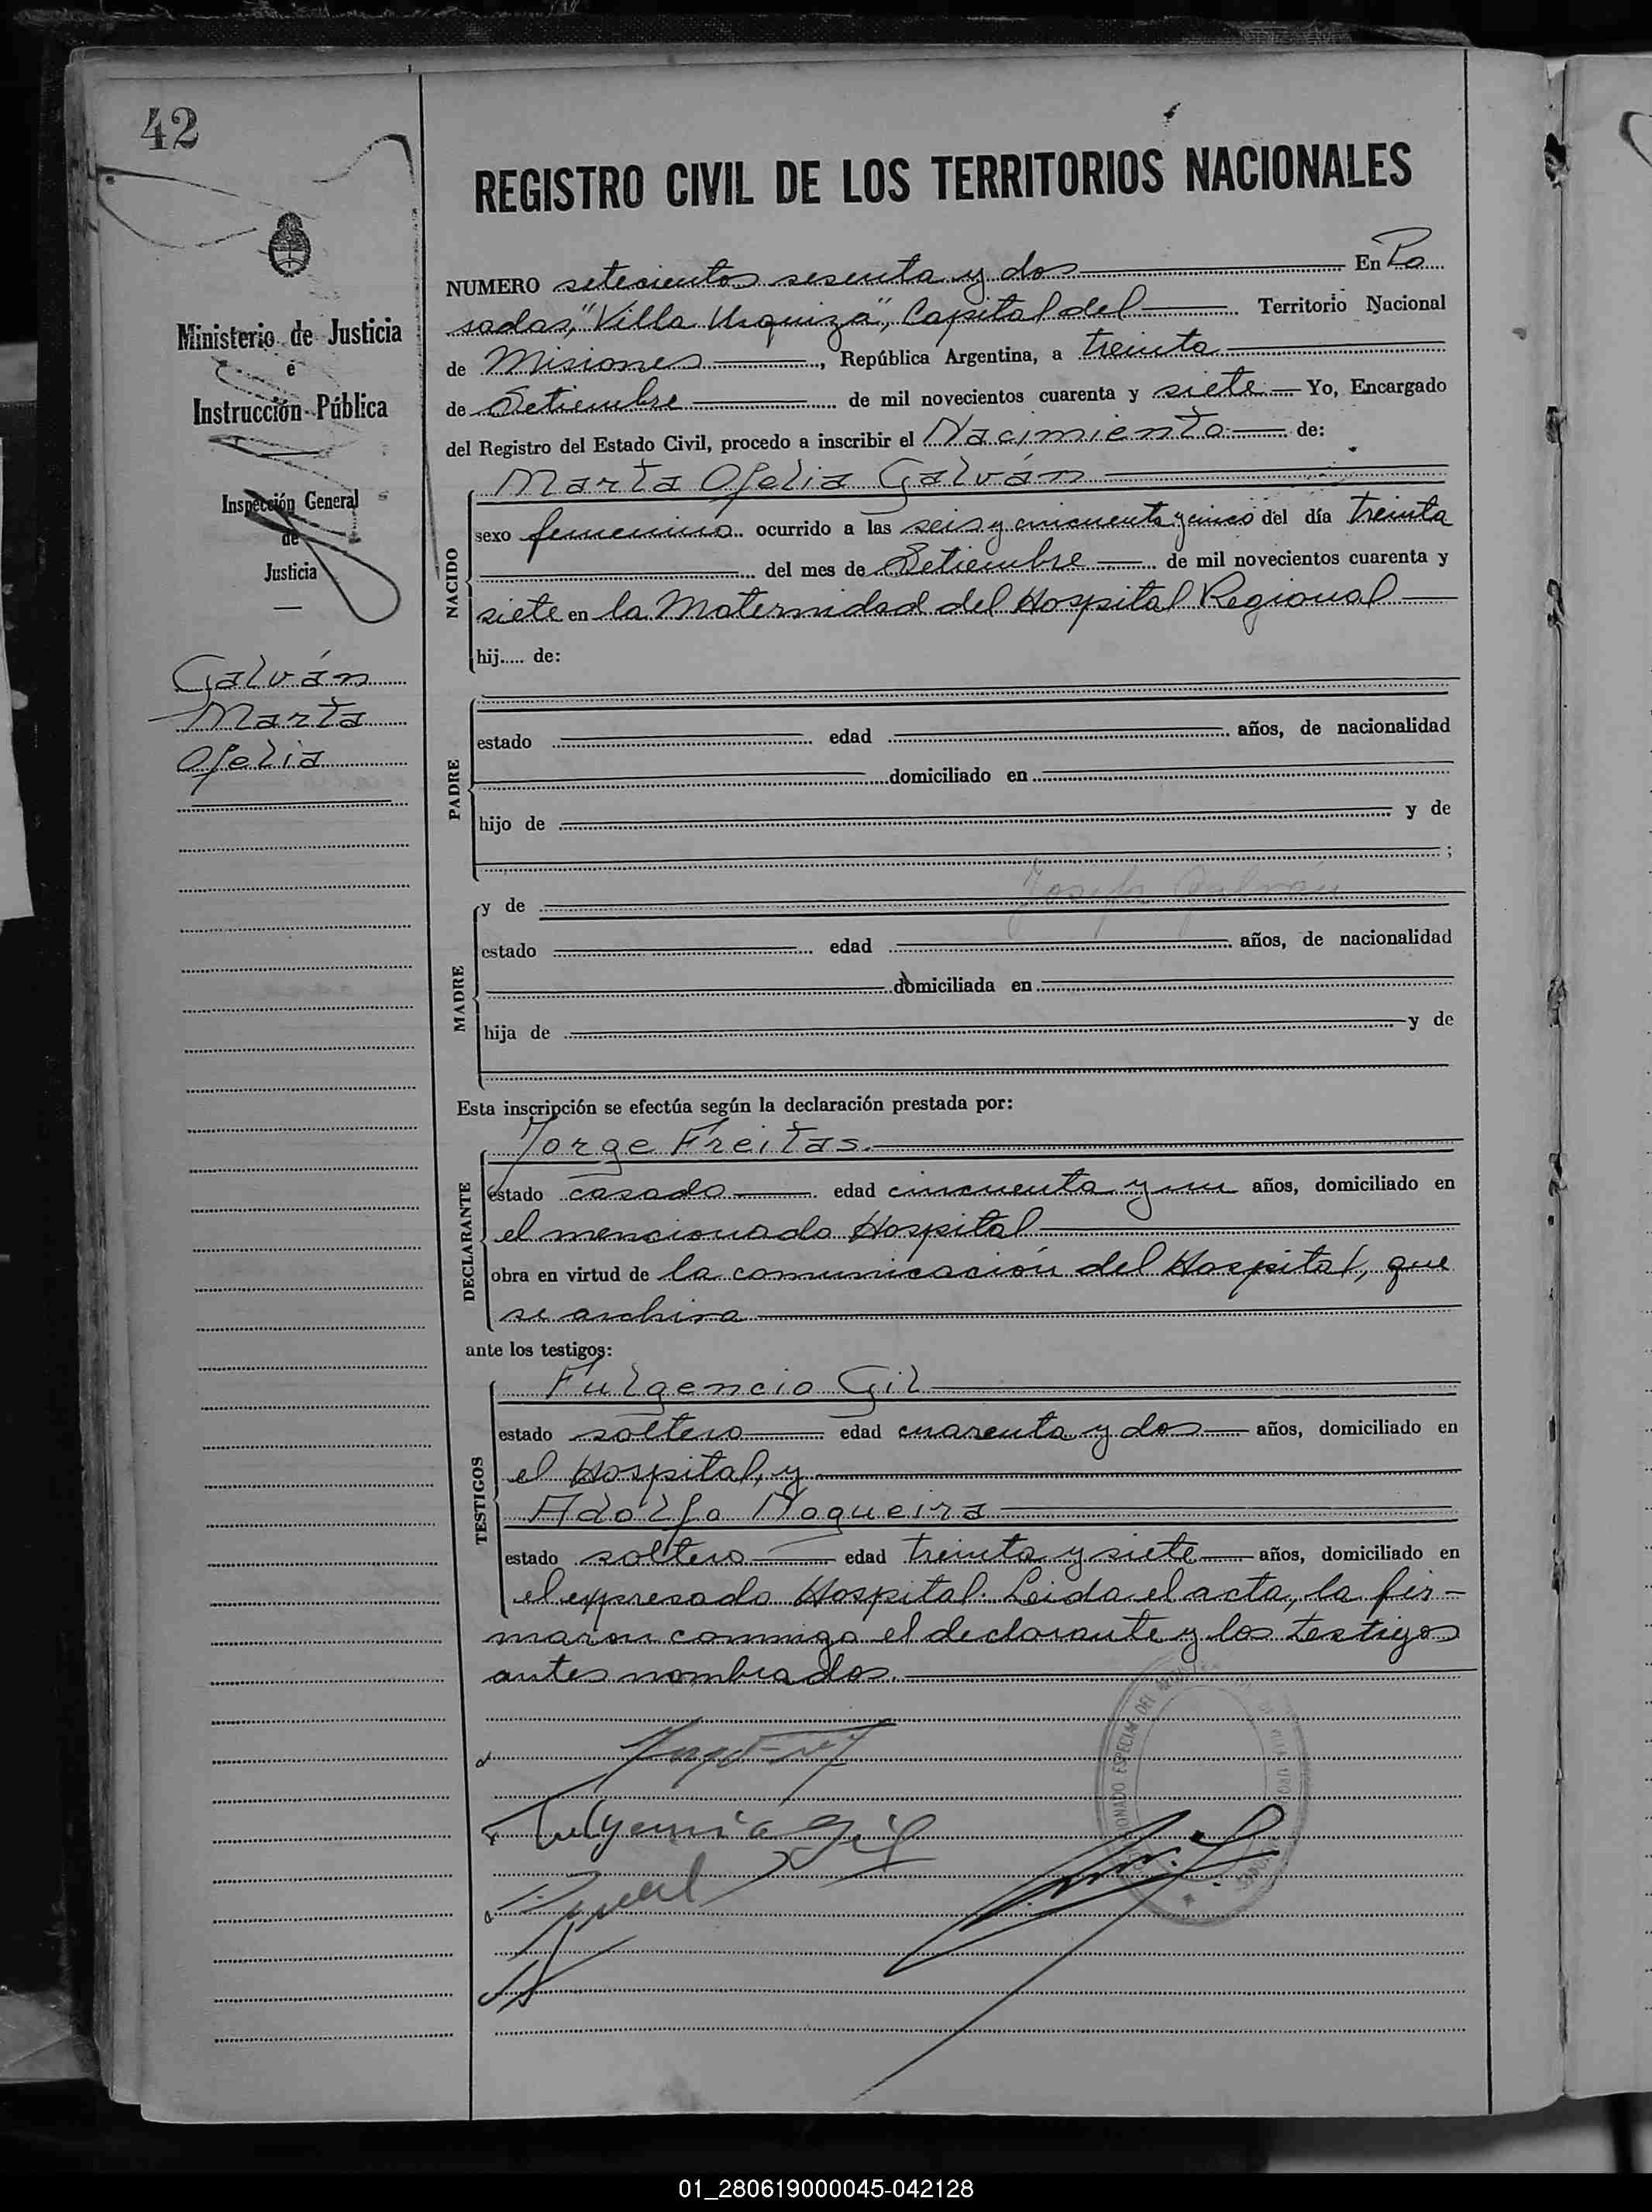 42
REGISTRO CIVIL DE LOS TERRITORIOS NACIONALES
Ministerio de Justicia
é
Instrucción Pública
Inspección General
de
Justicia
Galván
Marta
Ofelia
NUMERO setecientos sesenta y dos En Po
sadas, "Villa Urquiza", Capital del Territorio Nacional
de Misiones, República Argentina, a treinta
de Setiembre de mil novecientos cuarenta y siete Yo, Encargado
del Registro del Estado Civil, procedo a inscribir el Nacimiento de:
NACIDO
Marta Ofelia Galván
sexo femenino ocurrido a las seis y cincuenta y cinco del día treinta
del mes de Setiembre de mil novecientos cuarenta y
siete en la Maternidad del Hospital Regional
hij..... de:
PADRE
estado edad años, de nacionalidad
domiciliado en
hijo de y de
;
MADRE
y de
estado edad años, de nacionalidad
domiciliada en
hija de y de
Esta inscripción se efectúa según la declaración prestada por:
DECLARANTE
Jorge Freitas.
estado casado edad cincuenta y un años, domiciliado en
el mencionado Hospital
obra en virtud de la comunicación del Hospital, que
se archiva
ante los testigos:
TESTIGOS
Fulgencio Gil
estado soltero edad cuarenta y dos años, domiciliado en
el Hospital, y
Adolfo Noqueira
estado soltero edad treinta y siete años, domiciliado en
el expresado Hospital. Leida el acta, la fir-
maron conmigo el declarante y los testigos
antes nombrados.
Fulgencio Gil
01_280619000045-042128